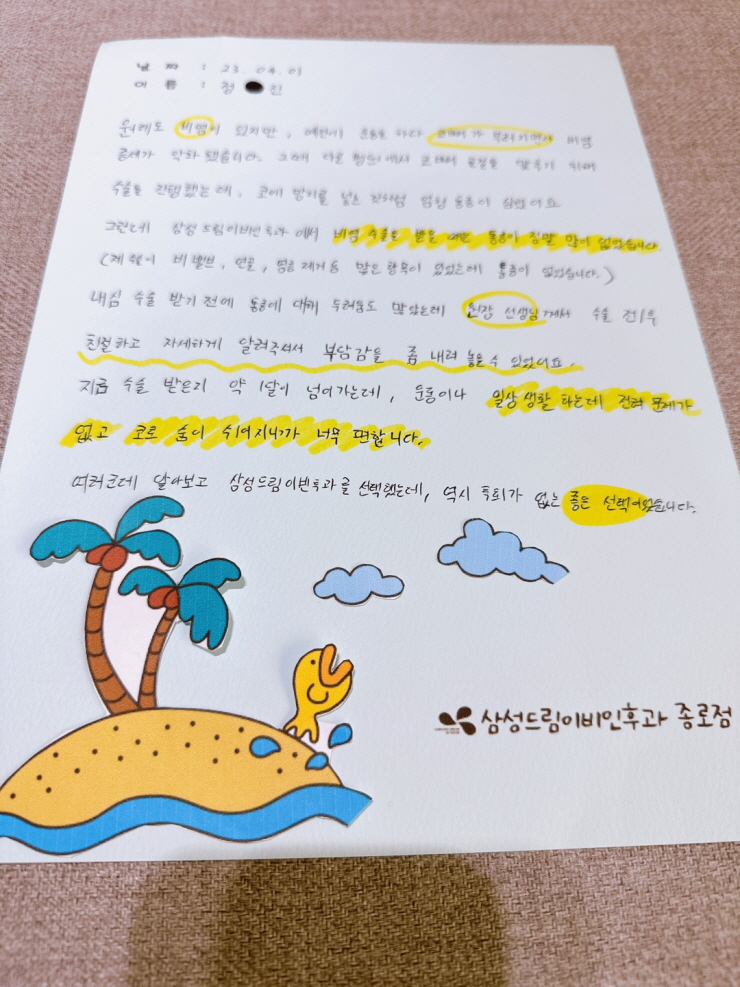 날 짜 : 23. 04. 01
이 름 : 정 진
원래도 비염이 있지만, 예전에 운동을 하다 코뼈가 부러지면서 비염
증세가 악화 됐습니다. 그래서 다른 병원에서 코뼈 골절을 맞추기 위해
수술을 진행했는데, 코에 망치를 넣은 것처럼 엄청 통증이 심했어요
그런데 삼성드림이비인후과에서 비염 수술을 받을 때는 통증이 정말 많이 없었습니다.
(제 원이 비밸브, 연골, 제거 등 많은 항목이 있었는데 통증이 없었습니다.)
내심 수술 받기 전에 통증에 대해 두려움도 많았는데 원장 선생님께서 수술 전/후
친절하고 자세하게 알려주셔서 부담감을 좀 내려 놓을 수 있었어요.
지금 수술 받은지 약 1달이 넘어가는데, 운동이나 일상생활 하는데 전혀 문제가
없고 코로 숨이 쉬어지니까 너무 편합니다.
여러군데 알아보고 삼성드림이빈후과를 선택했는데, 역시 후회가 없는 좋은 선택이었습니다.
삼성드림이비인후과 종로점